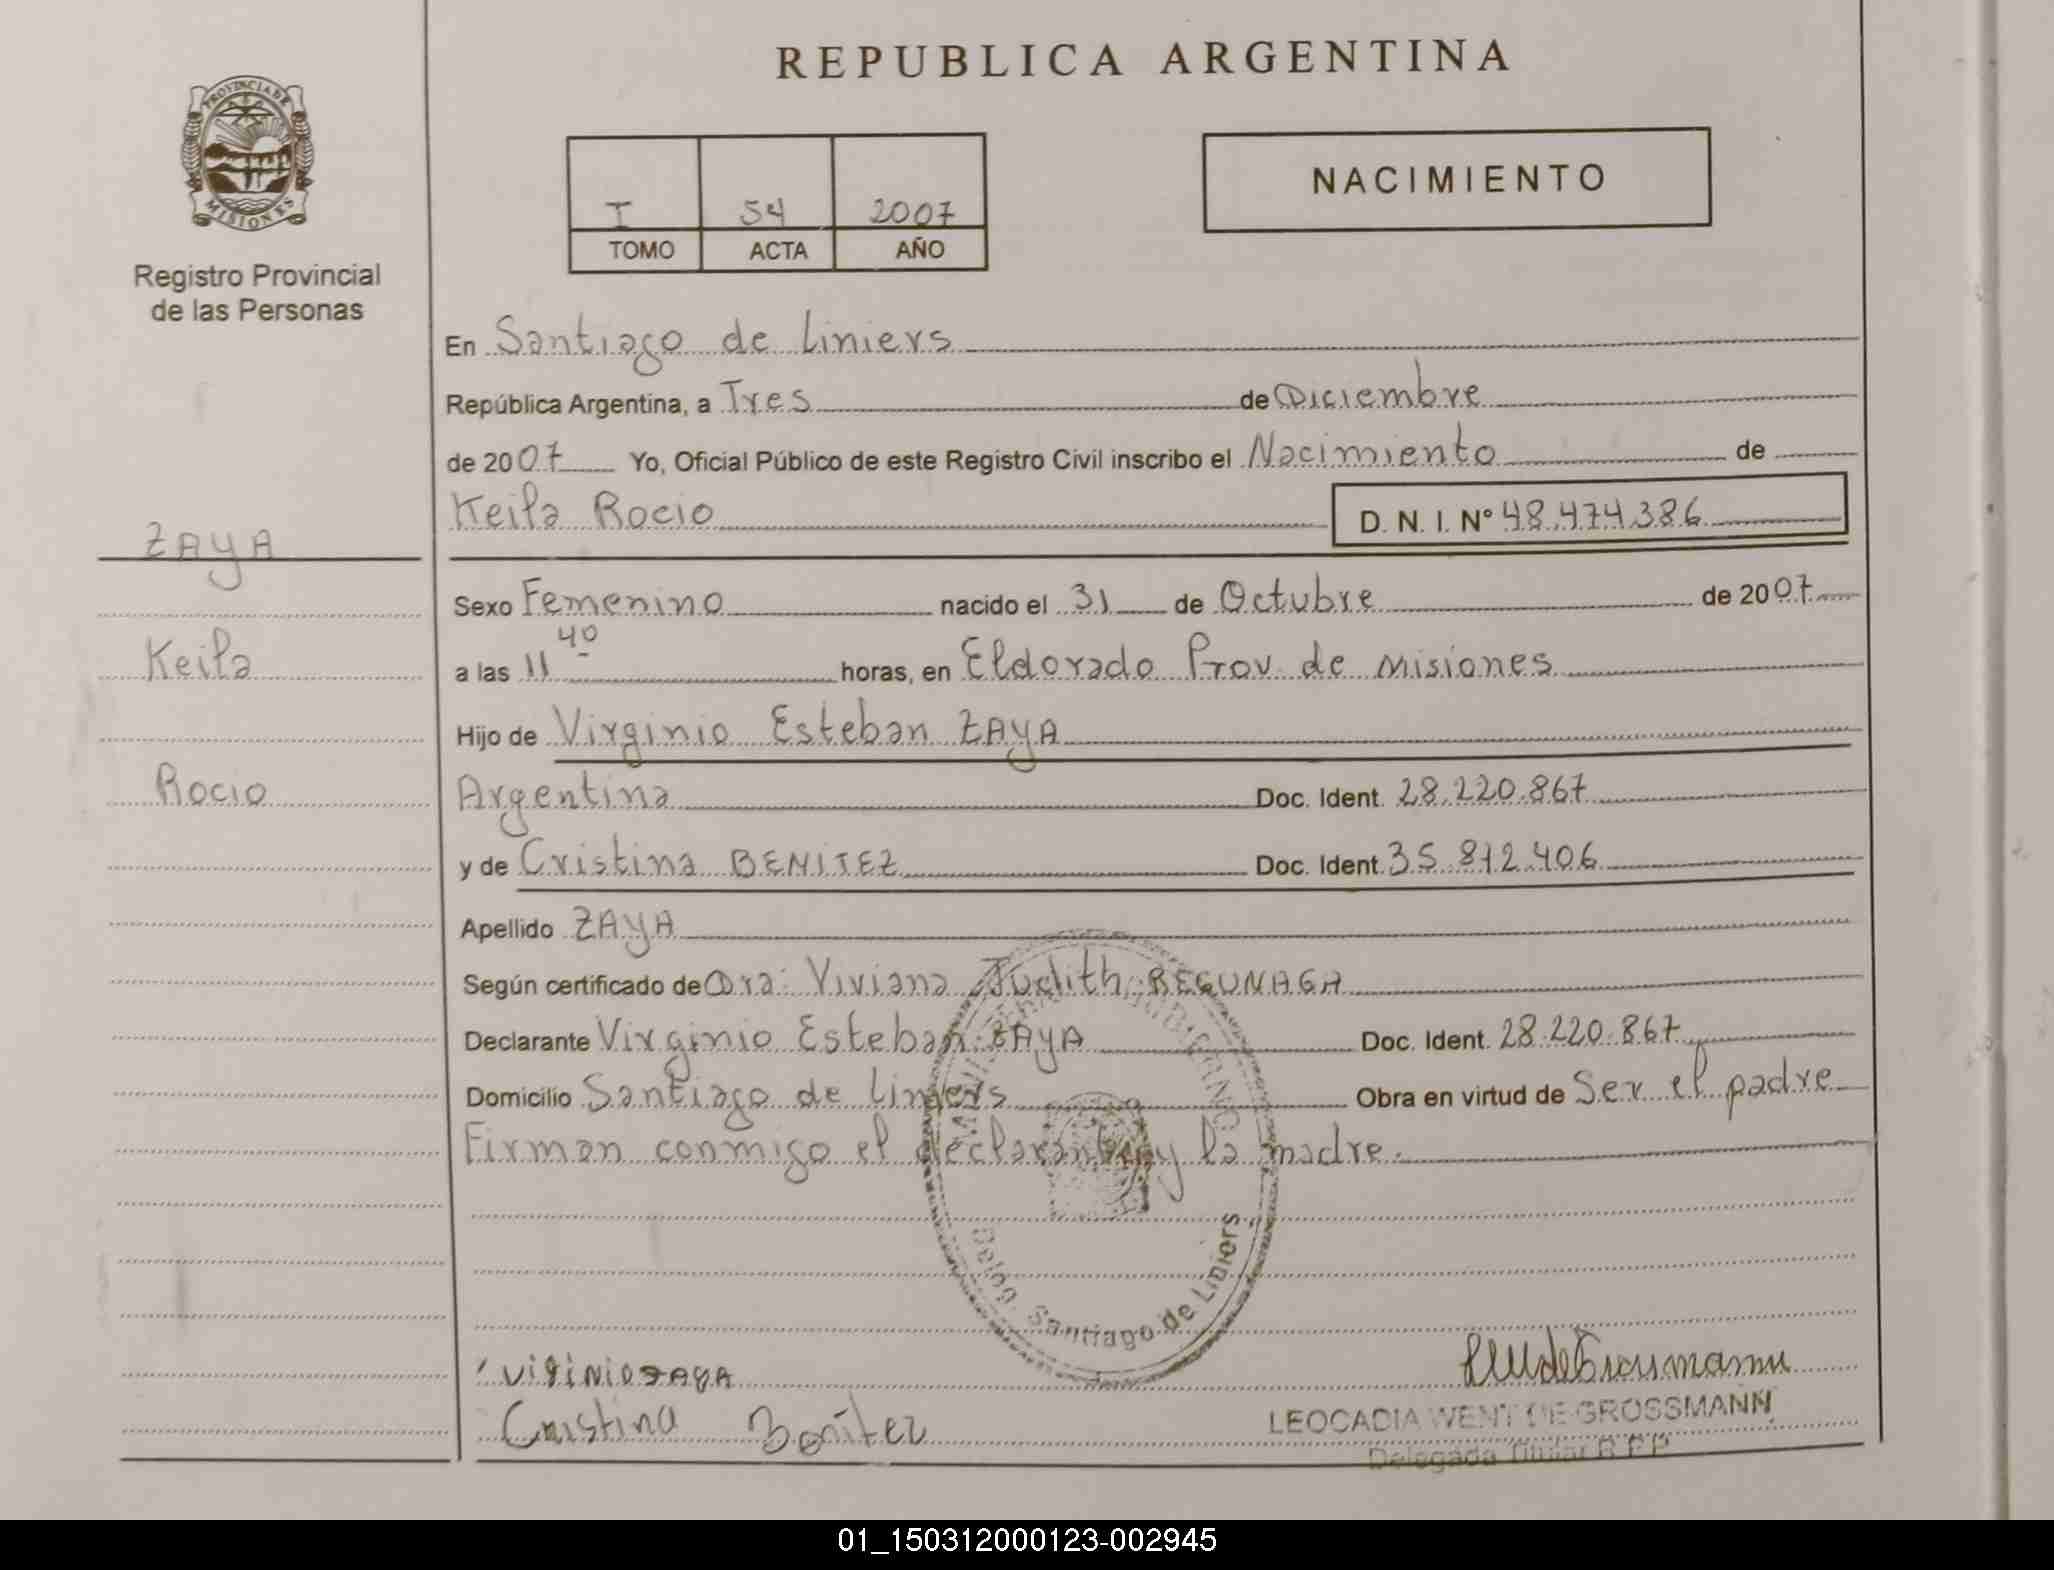 REPUBLICA ARGENTINA
PROVINCIA DE
MISIONES
Registro Provincial
de las Personas
I 54 2007
TOMO ACTA AÑO
NACIMIENTO
En Santiago de Liniers
República Argentina, a Tres de Diciembre
de 2007 Yo, Oficial Público de este Registro Civil inscribo el Nacimiento de
Keila Rocio D. N. I. Nº 48.474.386
ZAYA
Keila
Rocio
Sexo Femenino nacido el 31 de Octubre de 2007
a las 11 40 horas, en Eldorado Prov. de Misiones
Hijo de Virginio Esteban ZAYA
Argentina Doc. Ident. 28.220.867
y de Cristina BENITEZ Doc. Ident. 35.812.406
Apellido ZAYA
Según certificado de Dra: Viviana Judith REGUNAGA
Declarante Virginio Esteban ZAYA Doc. Ident. 28.220.867
Domicilio Santiago de Liniers Obra en virtud de Ser el padre
Firman conmigo el declarante y la madre.
Deleg. Santiago de Liniers
VIRINIO ZAYA
Cristina Benitez
LEOCADIA WENT DE GROSSMANN
Delegada Titular R.P.P
01_150312000123-002945